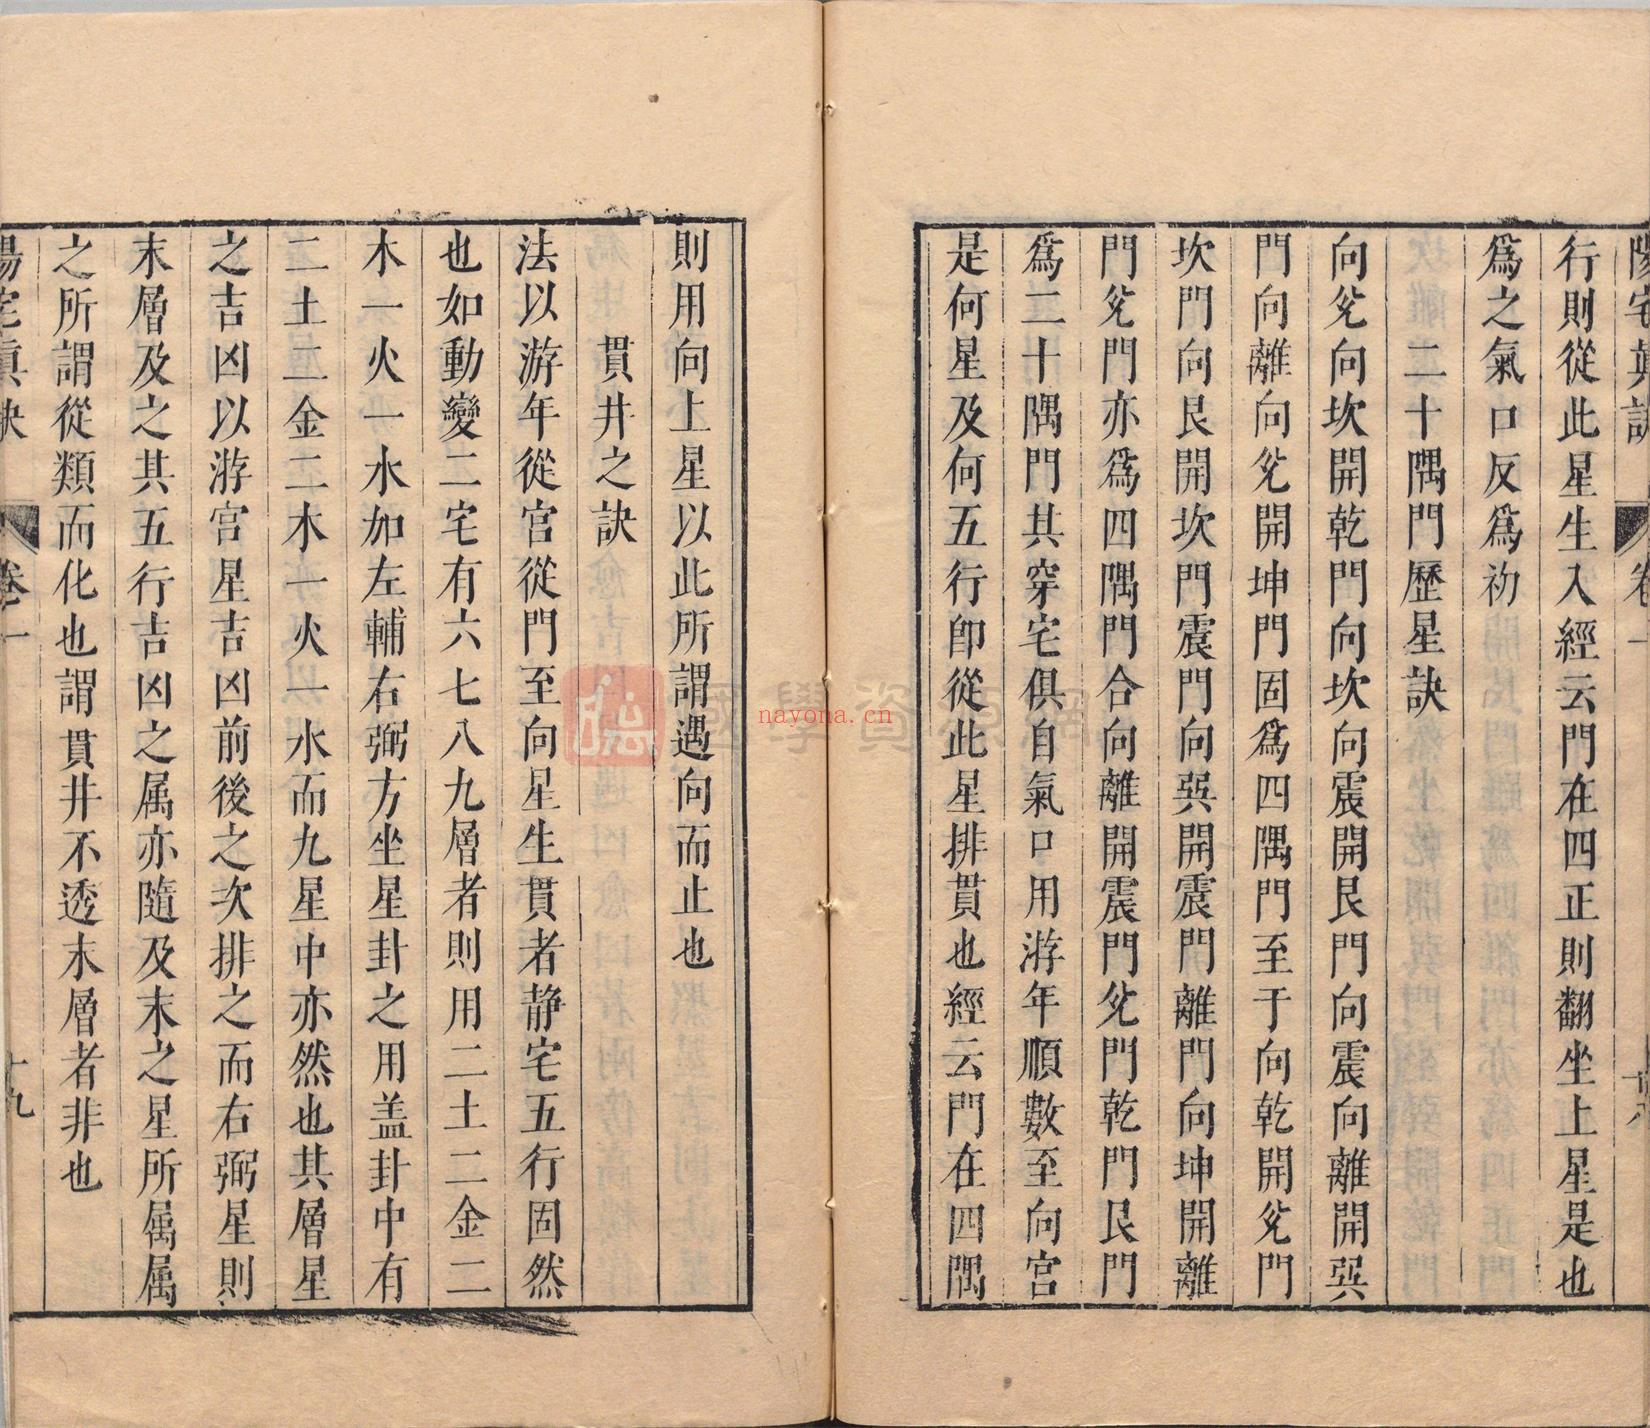 陽宅真訣 卷一 十八
行則從此星生入經云門在四正則翻坐上星是也
爲之氣口反爲初
二十隅門歷星訣
向兊向坎開乾門向坎向震開艮門向震向離開巽
門向離向兊開坤門固爲四隅門至于向乾開兊門
坎門向艮開坎門震門向巽開震門離門向坤開離
門兊門亦爲四隅門合向離開震門兊門乾門艮門
爲二十隅門其穿宅俱自氣口用游年順數至向宮
是何星及何五行卽從此星排貫也經云門在四隅
則用向上星以此所謂遇向而止也
貫井之訣
法以游年從宮從門至向星生貫者静宅五行固然
也如動變二宅有六七八九層者則用二土二金二
木一火一水加左輔右弼方坐星卦之用盖卦中有
二土二金二木一火一水而九星中亦然也其層星
之吉凶以游宮星吉凶前後之次排之而右弼星則
末層及之其五行吉凶之属亦隨及末之星所属属
之所謂從類而化也謂貫井不透末層者非也
陽宅真訣 卷一 十九
國學資
nayona.cn